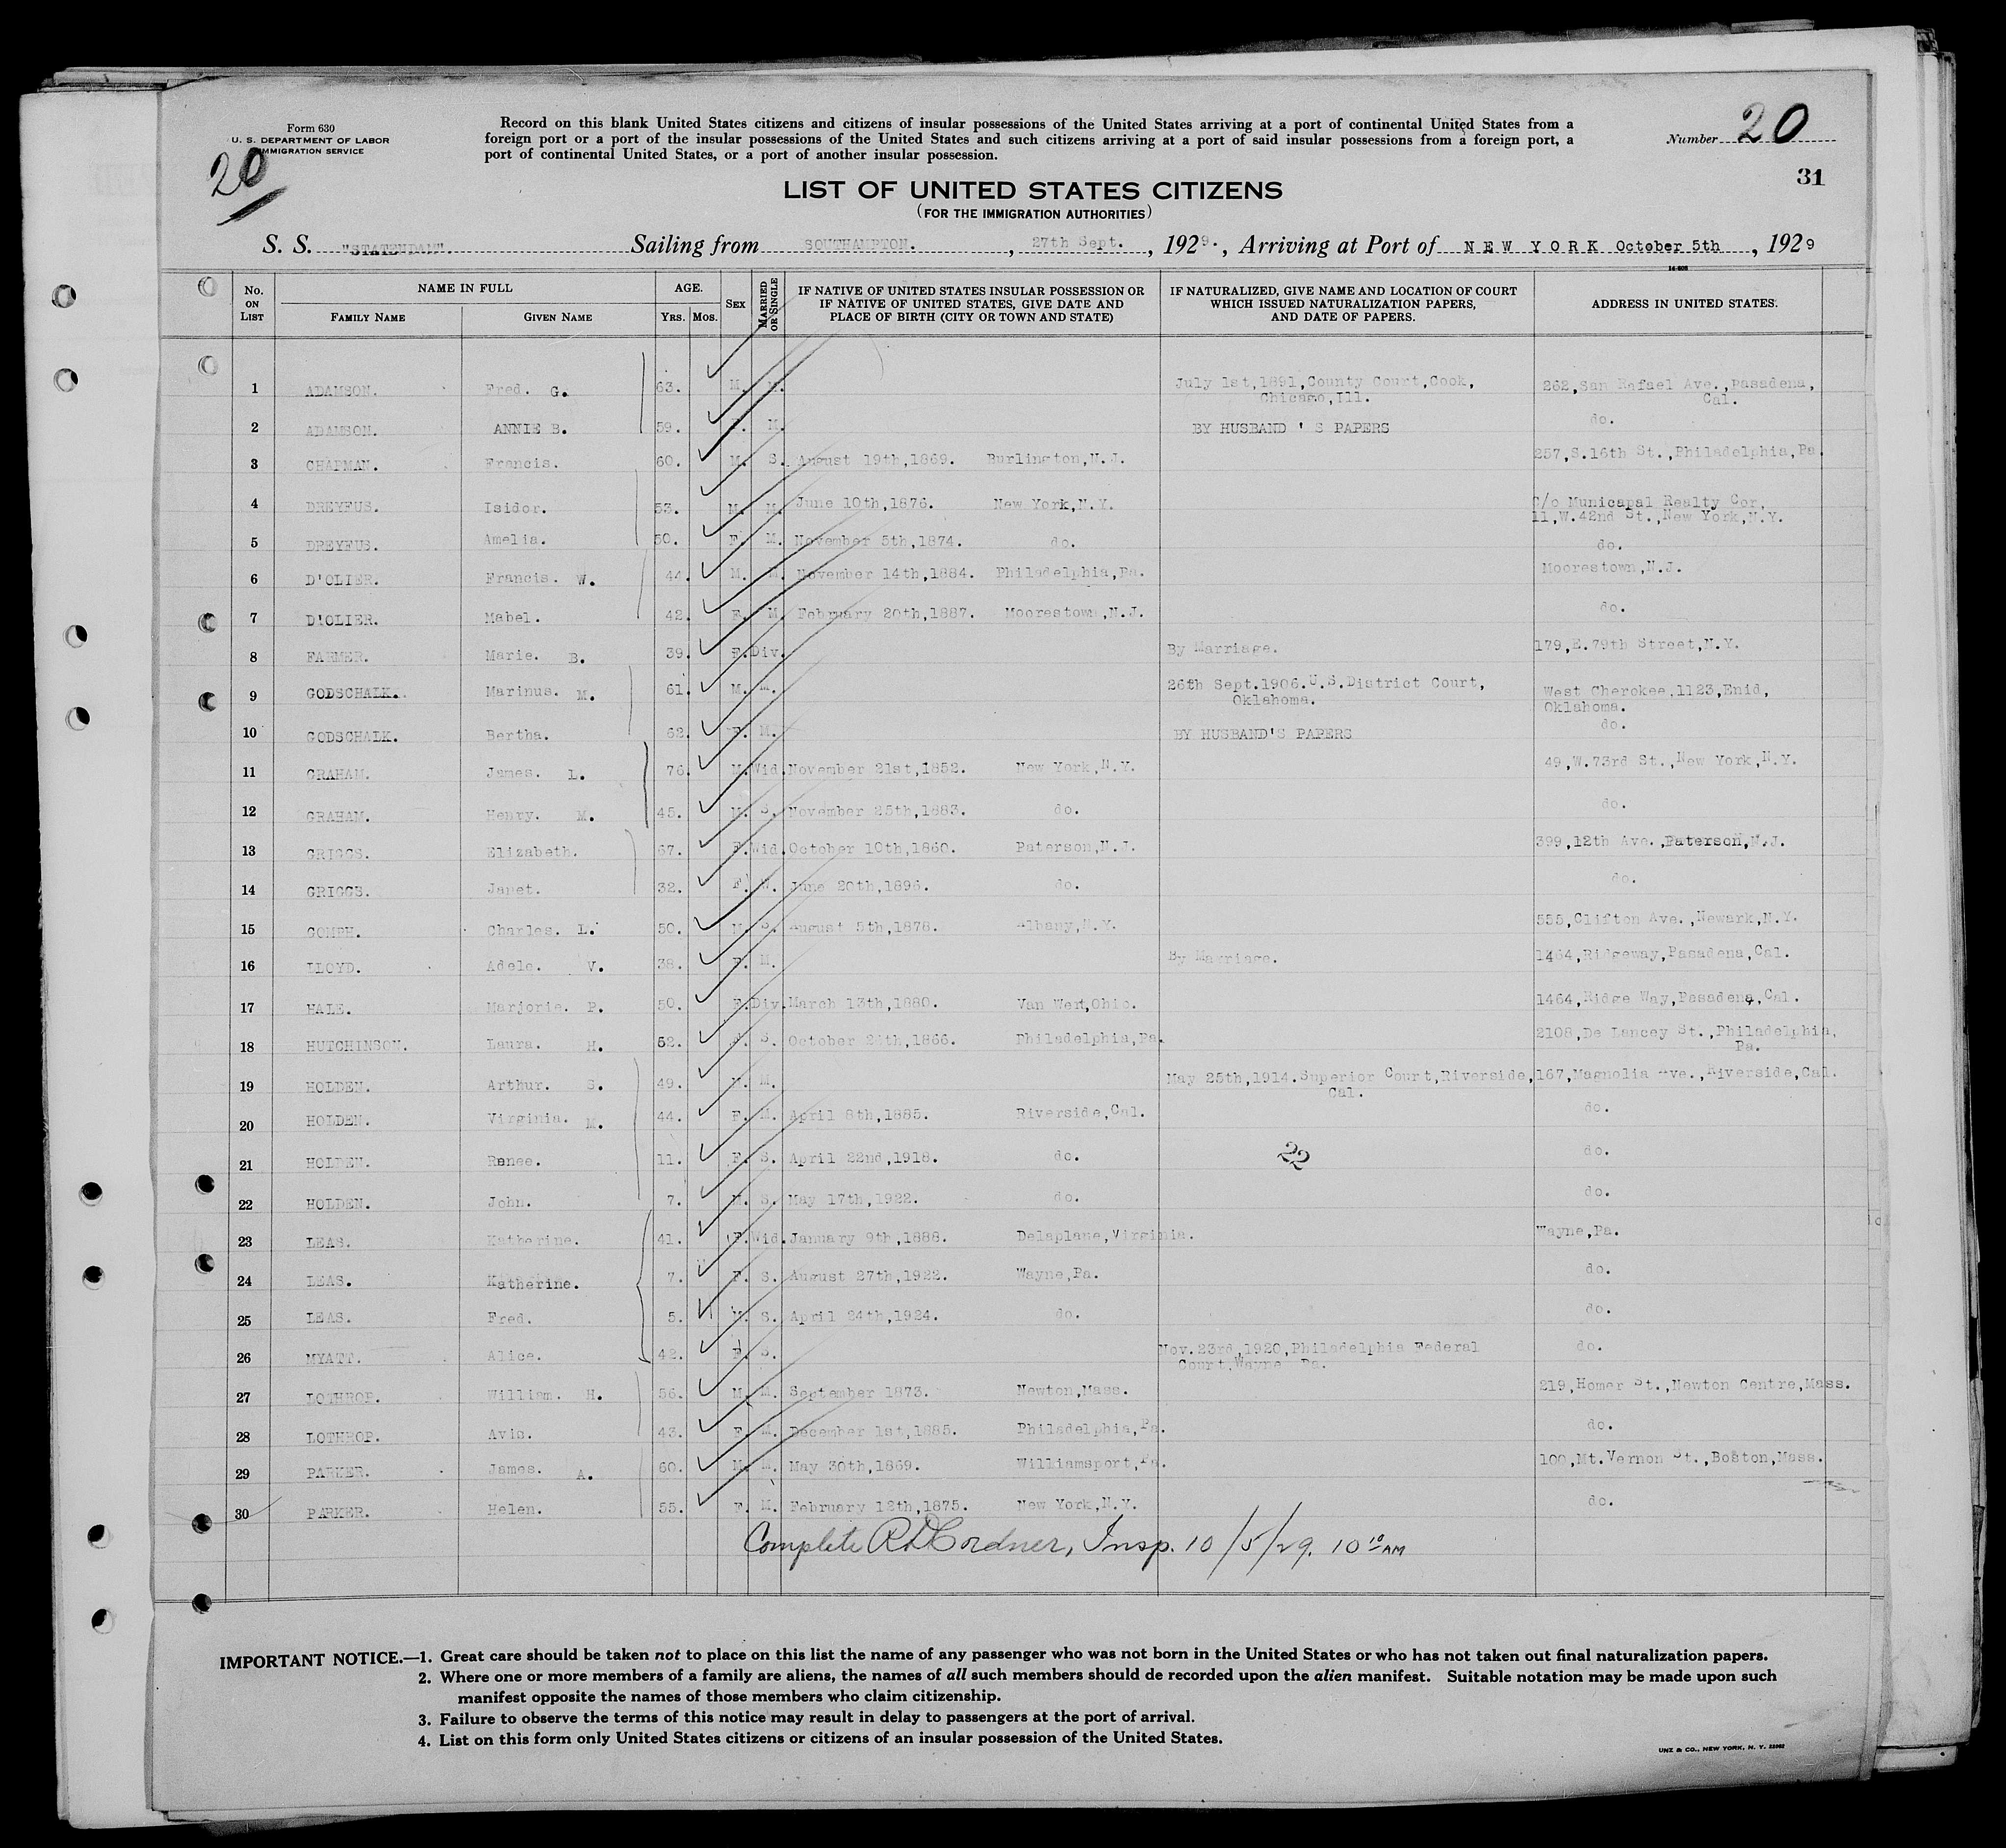 Form 630
U. S. DEPARTMENT OF LABOR
IMMIGRATION SERVICE
20
Record on this blank United States citizens and citizens of insular possessions of the United States arriving at a port of continental United States from a
foreign port or a port of the insular possessions of the United States and such citizens arriving at a port of said insular possessions from a foreign port, a
port of continental United States, or a port of another insular possession.
Number 20
31
LIST OF UNITED STATES CITIZENS
(FOR THE IMMIGRATION AUTHORITIES)
S. S. "STATENDAM". Sailing from SOUTHAMPTON. , 27th Sept. , 1929. , Arriving at Port of NEW YORK October 5th , 1929
No. ON LIST NAME IN FULL FAMILY NAME GIVEN NAME AGE. YRS. MOS. SEX MARRIED OR SINGLE IF NATIVE OF UNITED STATES INSULAR POSSESSION OR IF NATIVE OF UNITED STATES, GIVE DATE AND PLACE OF BIRTH (CITY OR TOWN AND STATE) IF NATURALIZED, GIVE NAME AND LOCATION OF COURT WHICH ISSUED NATURALIZATION PAPERS, AND DATE OF PAPERS. ADDRESS IN UNITED STATES.
1 ADAMSON. Fred. G. 63. M. M. July 1st,1891,County Court,Cook, 262,San Rafael Ave.,Pasadena,
Chicago,Ill. Cal.
2 ADAMSON. ANNIE B. 59. F. M. BY HUSBAND ' S PAPERS do.
3 CHAPMAN. Francis. 60. M. S. August 19th,1869. Burlington,N.J. 257,S.16th St.,Philadelphia,Pa.
4 DREYFUS. Isidor. 53. M. M. June 10th,1876. New York,N.Y. C/o Municapal Realty Cor,
11,W.42nd St.,New York,N.Y.
5 DREYFUS. Amelia. 50. F. M. November 5th,1874. do. do.
6 D'OLIER. Francis. W. 44. M. M. November 14th,1884. Philadelphia,Pa. Moorestown,N.J.
7 D'OLIER. Mabel. 42. F. M. February 20th,1887. Moorestown,N.J. do.
8 FARMER. Marie. B. 39. F. Div. By Marriage. 179,E.79th Street,N.Y.
9 GODSCHALK. Marinus. M. 61. M. M. 26th Sept.1906.U.S.District Court, West Cherokee,1123,Enid,
Oklahoma. Oklahoma.
10 GODSCHALK. Bertha. 62. F. M. BY HUSBAND'S PAPERS do.
11 GRAHAM. James. L. 76. M. Wid. November 21st,1852. New York,N.Y. 49,W.73rd St.,New York,N.Y.
12 GRAHAM. Henry. M. 45. M. S. November 25th,1883. do. do.
13 GRIGGS. Elizabeth. 67. F. Wid. October 10th,1860. Paterson,N.J. 399,12th Ave.,Paterson,N.J.
14 GRIGGS. Janet. 32. F. June 20th,1896. do. do.
15 GOMPH. Charles. L. 50. M. S. August 5th,1878. Albany,N.Y. 555,Clifton Ave.,Newark,N.Y.
16 LLOYD. Adele. V. 38. F. M. By Marriage. 1464,Ridgeway,Pasadena,Cal.
17 HALE. Marjorie. P. 50. F. Div. March 13th,1880. Van Wert,Ohio. 1464,Ridge Way,Pasadena,Cal.
18 HUTCHINSON. Laura. H. 52. F. S. October 24th,1866. Philadelphia,Pa. 2108,De Lancey St.,Philadelphia,
Pa.
19 HOLDEN. Arthur. S. 49. M. M. May 25th,1914.Superior Court,Riverside, 167,Magnolia Ave.,Riverside,Cal.
Cal.
20 HOLDEN. Virginia. M. 44. F. M. April 8th,1885. Riverside,Cal. do.
21 HOLDEN. Renee. 11. F. S. April 22nd,1918. do. 22 do.
22 HOLDEN. John. 7. M. S. May 17th,1922. do. do.
23 LEAS. Katherine. 41. F. Wid. January 9th,1888. Delaplane,Virginia. Wayne,Pa.
24 LEAS. Katherine. 7. F. S. August 27th,1922. Wayne,Pa. do.
25 LEAS. Fred. 5. M. S. April 24th,1924. do. do.
26 MYATT. Alice. 42. F. S. Nov.23rd,1920,Philadelphia Federal do.
Court,Wayne Pa.
27 LOTHROP. William. H. 56. M. M. September 1873. Newton,Mass. 219,Homer St.,Newton Centre,Mass.
28 LOTHROP. Avis. 43. F. M. December 1st,1885. Philadelphia,Pa. do.
29 PARKER. James. A. 60. M. M. May 30th,1869. Williamsport,Pa. 100,Mt.Vernon St.,Boston,Mass.
30 PARKER. Helen. 55. F. M. February 12th,1875. New York,N.Y. do.
Complete R D Cordner, Insp. 10/5/29. 10 10 AM
IMPORTANT NOTICE.—1. Great care should be taken not to place on this list the name of any passenger who was not born in the United States or who has not taken out final naturalization papers.
2. Where one or more members of a family are aliens, the names of all such members should de recorded upon the alien manifest. Suitable notation may be made upon such
manifest opposite the names of those members who claim citizenship.
3. Failure to observe the terms of this notice may result in delay to passengers at the port of arrival.
4. List on this form only United States citizens or citizens of an insular possession of the United States.
UNZ & CO., NEW YORK, N. Y.